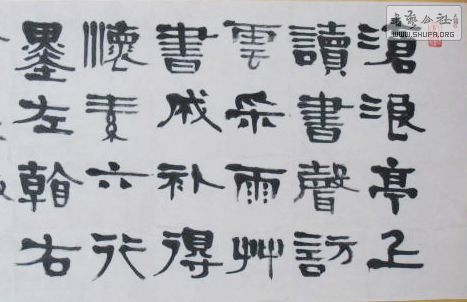 滄浪亭上
讀書聲訪
雲采雨艸
書成补得
懷素六行
墨左翰右
公社
WWW.SHUFA.ORG